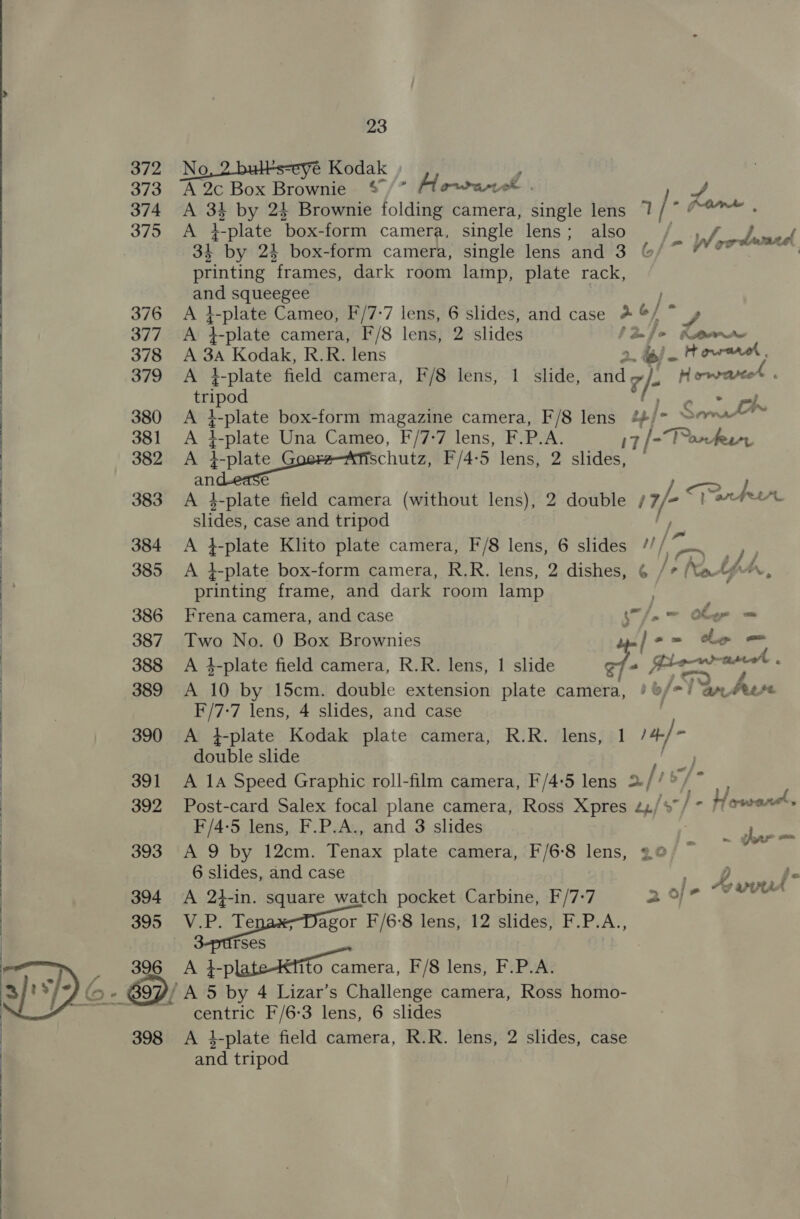 23
372 No. 2 bull's-eye Kodak
373 A 2c Box Brownie 5/- Howard.
374 A 3¼ by 2¼ Brownie folding camera, single lens 7/-
375 A ¼-plate box-form camera, single lens; also
3¼ by 2¼ box-form camera, single lens and 3 6/- Woodward
printing frames, dark room lamp, plate rack,
and squeegee
376 A ¼-plate Cameo, F/7·7 lens, 6 slides, and case 26/-
377 A ¼-plate camera, F/8 lens, 2 slides 12/-
378 A 3A Kodak, R.R. lens Howard.
379 A ¼-plate field camera, F/8 lens, 1 slide, and 7/- Howard.
tripod
380 A ¼-plate box-form magazine camera, F/8 lens
381 A ¼-plate Una Cameo, F/7·7 lens, F.P.A. 17/- Parker
382 A ¼-plate Goerz-Anschutz, F/4·5 lens, 2 slides,
and case
383 A ½-plate field camera (without lens), 2 double 17/- Parker
slides, case and tripod
384 A ¼-plate Klito plate camera, F/8 lens, 6 slides 11/-
385 A ¼-plate box-form camera, R.R. lens, 2 dishes, 6/-
printing frame, and dark room lamp
386 Frena camera, and case 5/-
387 Two No. 0 Box Brownies 4/-
388 A ½-plate field camera, R.R. lens, 1 slide Howard.
389 A 10 by 15cm. double extension plate camera, 16/- Parker
F/7·7 lens, 4 slides, and case
390 A ¼-plate Kodak plate camera, R.R. lens, 1 14/-
double slide
391 A 1A Speed Graphic roll-film camera, F/4·5 lens 2/15/-
392 Post-card Salex focal plane camera, Ross Xpres 4/5/- Howard.
F/4·5 lens, F.P.A., and 3 slides
393 A 9 by 12cm. Tenax plate camera, F/6·8 lens, 20/-
6 slides, and case
394 A 2¼-in. square watch pocket Carbine, F/7·7 20/-
395 V.P. Tenax-Dagor F/6·8 lens, 12 slides, F.P.A.,
3 purses
396 A ¼-plate Klito camera, F/8 lens, F.P.A.
3/15/- 6 - 397 A 5 by 4 Lizar's Challenge camera, Ross homo-
centric F/6·3 lens, 6 slides
398 A ½-plate field camera, R.R. lens, 2 slides, case
and tripod